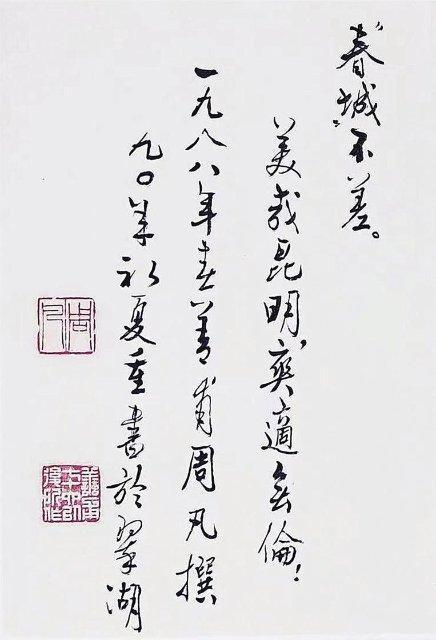 "春城"不差。
美哉昆明，爽適無倫！
一九八八年春善甫周凡撰
九〇年初夏重書於翠湖
周凡